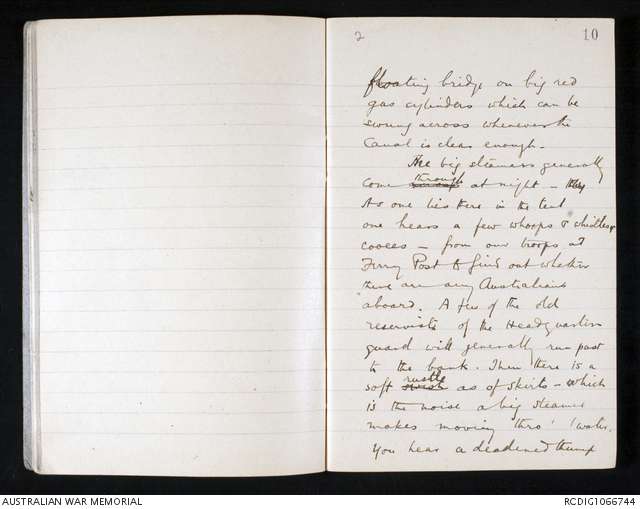 2
10
floating bridge on big red
gas cylinders which can be
swung across whenever the
Canal is clear enough.
The big steamers generally
come through at night - they
As one lies there in the tent
one hears a few whoops & whistles &
cooees - from our troops at
Ferry Post to find out whether
there are any Australians
aboard. A few of the old
reservists of the Headquarters
guard will generally run past
to the bank. Then there is a
soft rustle as of skirts - which
is the noise a big steamer
makes moving thro' water.
You hear a deadened thump
AUSTRALIAN WAR MEMORIAL
RCDIG1066744